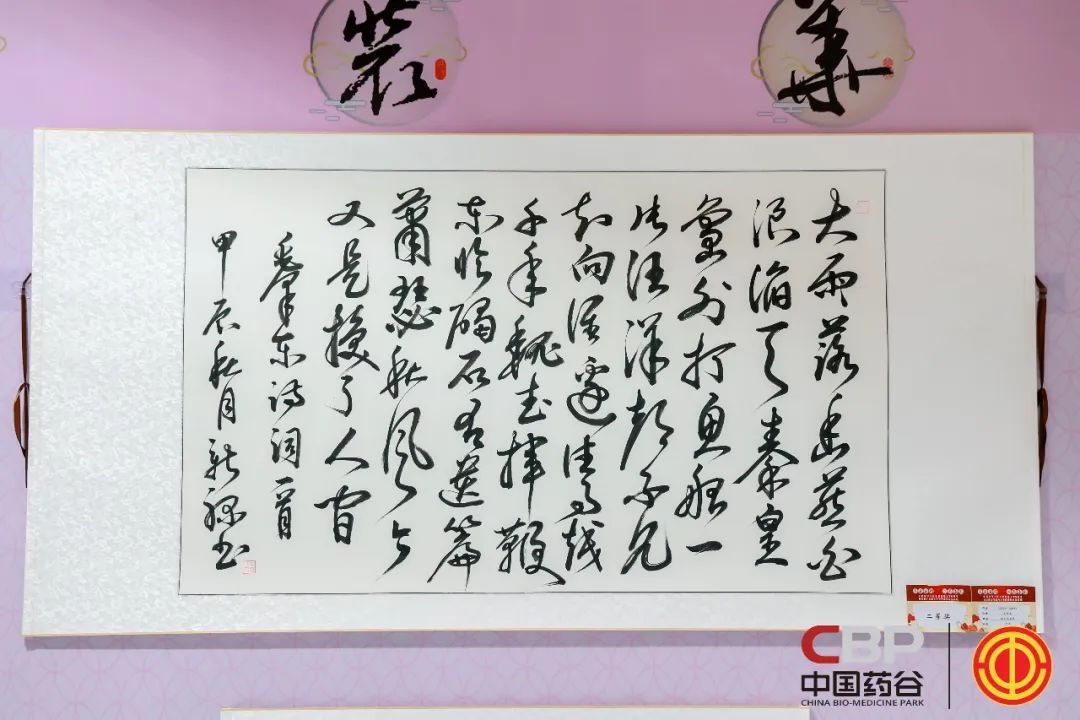 華
大雨落幽燕白
浪滔天秦皇
島外打鱼船一
片汪洋都不见
知向谁边往事越
千年魏武挥鞭
东临碣石有遗篇
萧瑟秋风今
又是换了人间
毛泽东诗词一首
甲辰秋月新 书
二等奖
CBP
中国药谷
CHINA BIO-MEDICINE PARK